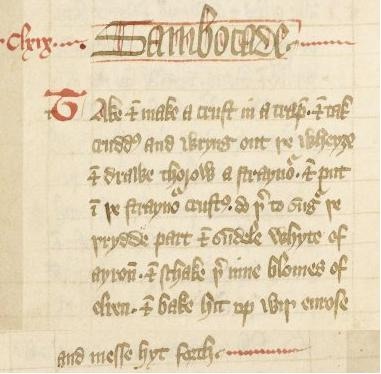 .clxix.
Sambocade.
Take ⁊ make a crust in a trap. ⁊ tak
crudd⁹ and wryng out þe wheyze
⁊ drawe thorow a straynoͬ. ⁊ put
ī þe straynoͬ crust⁹. do þͬto sugͬ þe
þrydde part ⁊ sūdele whyte of
ayroun. ⁊ schake þͬ inne blomes of
elren. ⁊ bake hit up wiþ eurose
and messe hyt forth.